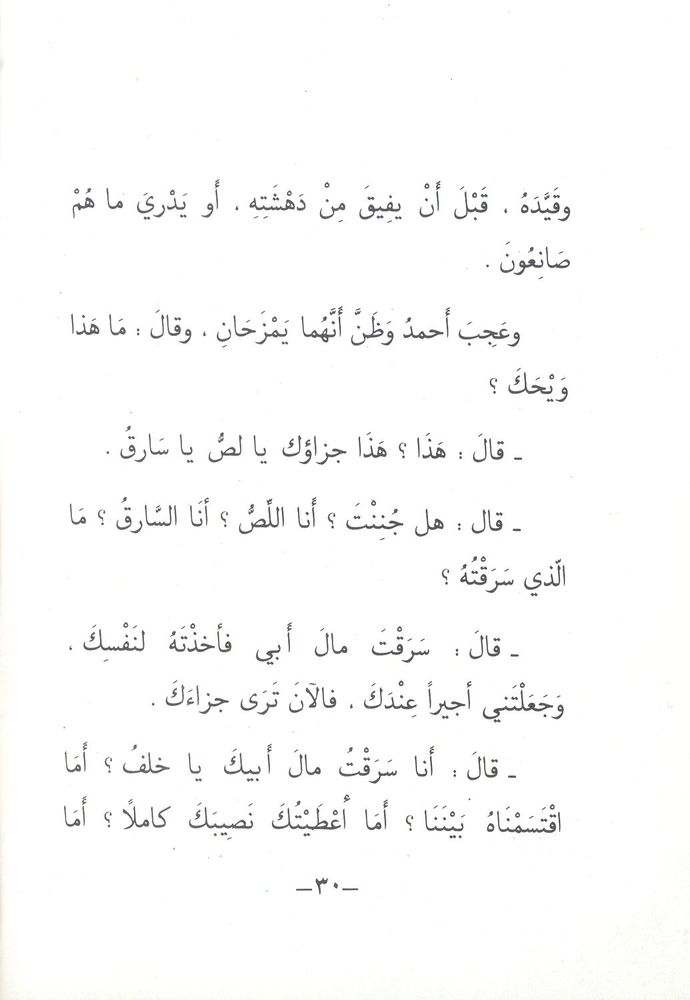 وقَيَّدَهُ ، قَبْلَ أَنْ يفِيقَ مِنْ دَهْشَتِهِ ، أَو يَدْرِيَ ما هُمْ
صَانِعُونَ .
وعَجِبَ أَحمدُ وَظَنَّ أَنَّهُما يَمْزَحَانِ ، وقالَ : مَا هَذا
وَيْحَكَ ؟
ـ قالَ : هَذَا ؟ هَذَا جزاؤك يا لصُّ يا سَارقُ .
ـ قال : هل جُنِنْتَ ؟ أَنا اللّصُّ ؟ أنَا السَّارقُ ؟ مَا
الّذي سَرَقْتُهُ ؟
ـ قالَ : سَرَقْتَ مالَ أَبي فأخذْتَهُ لنَفْسِكَ ،
وَجَعَلْتَني أجيراً عِنْدَكَ ، فالآنَ تَرَى جزاءَكَ .
ـ قالَ : أَنا سَرَقْتُ مالَ أَبيكَ يا خلفُ ؟ أَمَا
اقْتَسَمْنَاهُ بَيْنَنَا ؟ أَمَا أَعْطَيْتُكَ نَصِيبَكَ كاملاً ؟ أَمَا
ـ٣٠ـ